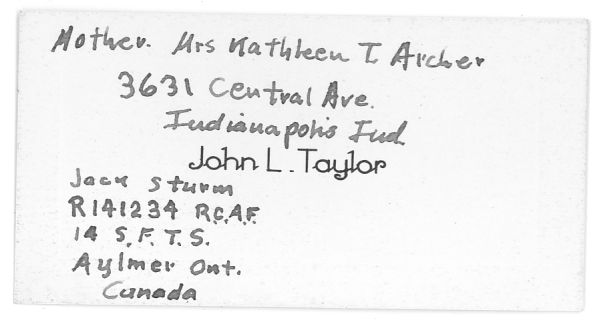 Mother. Mrs Kathleen T Archer
3631 Central Ave.
Indianapolis Ind
John L. Taylor
Jack Sturm
R141234 R.C.A.F.
14 S.F.T.S.
Aylmer Ont.
Canada